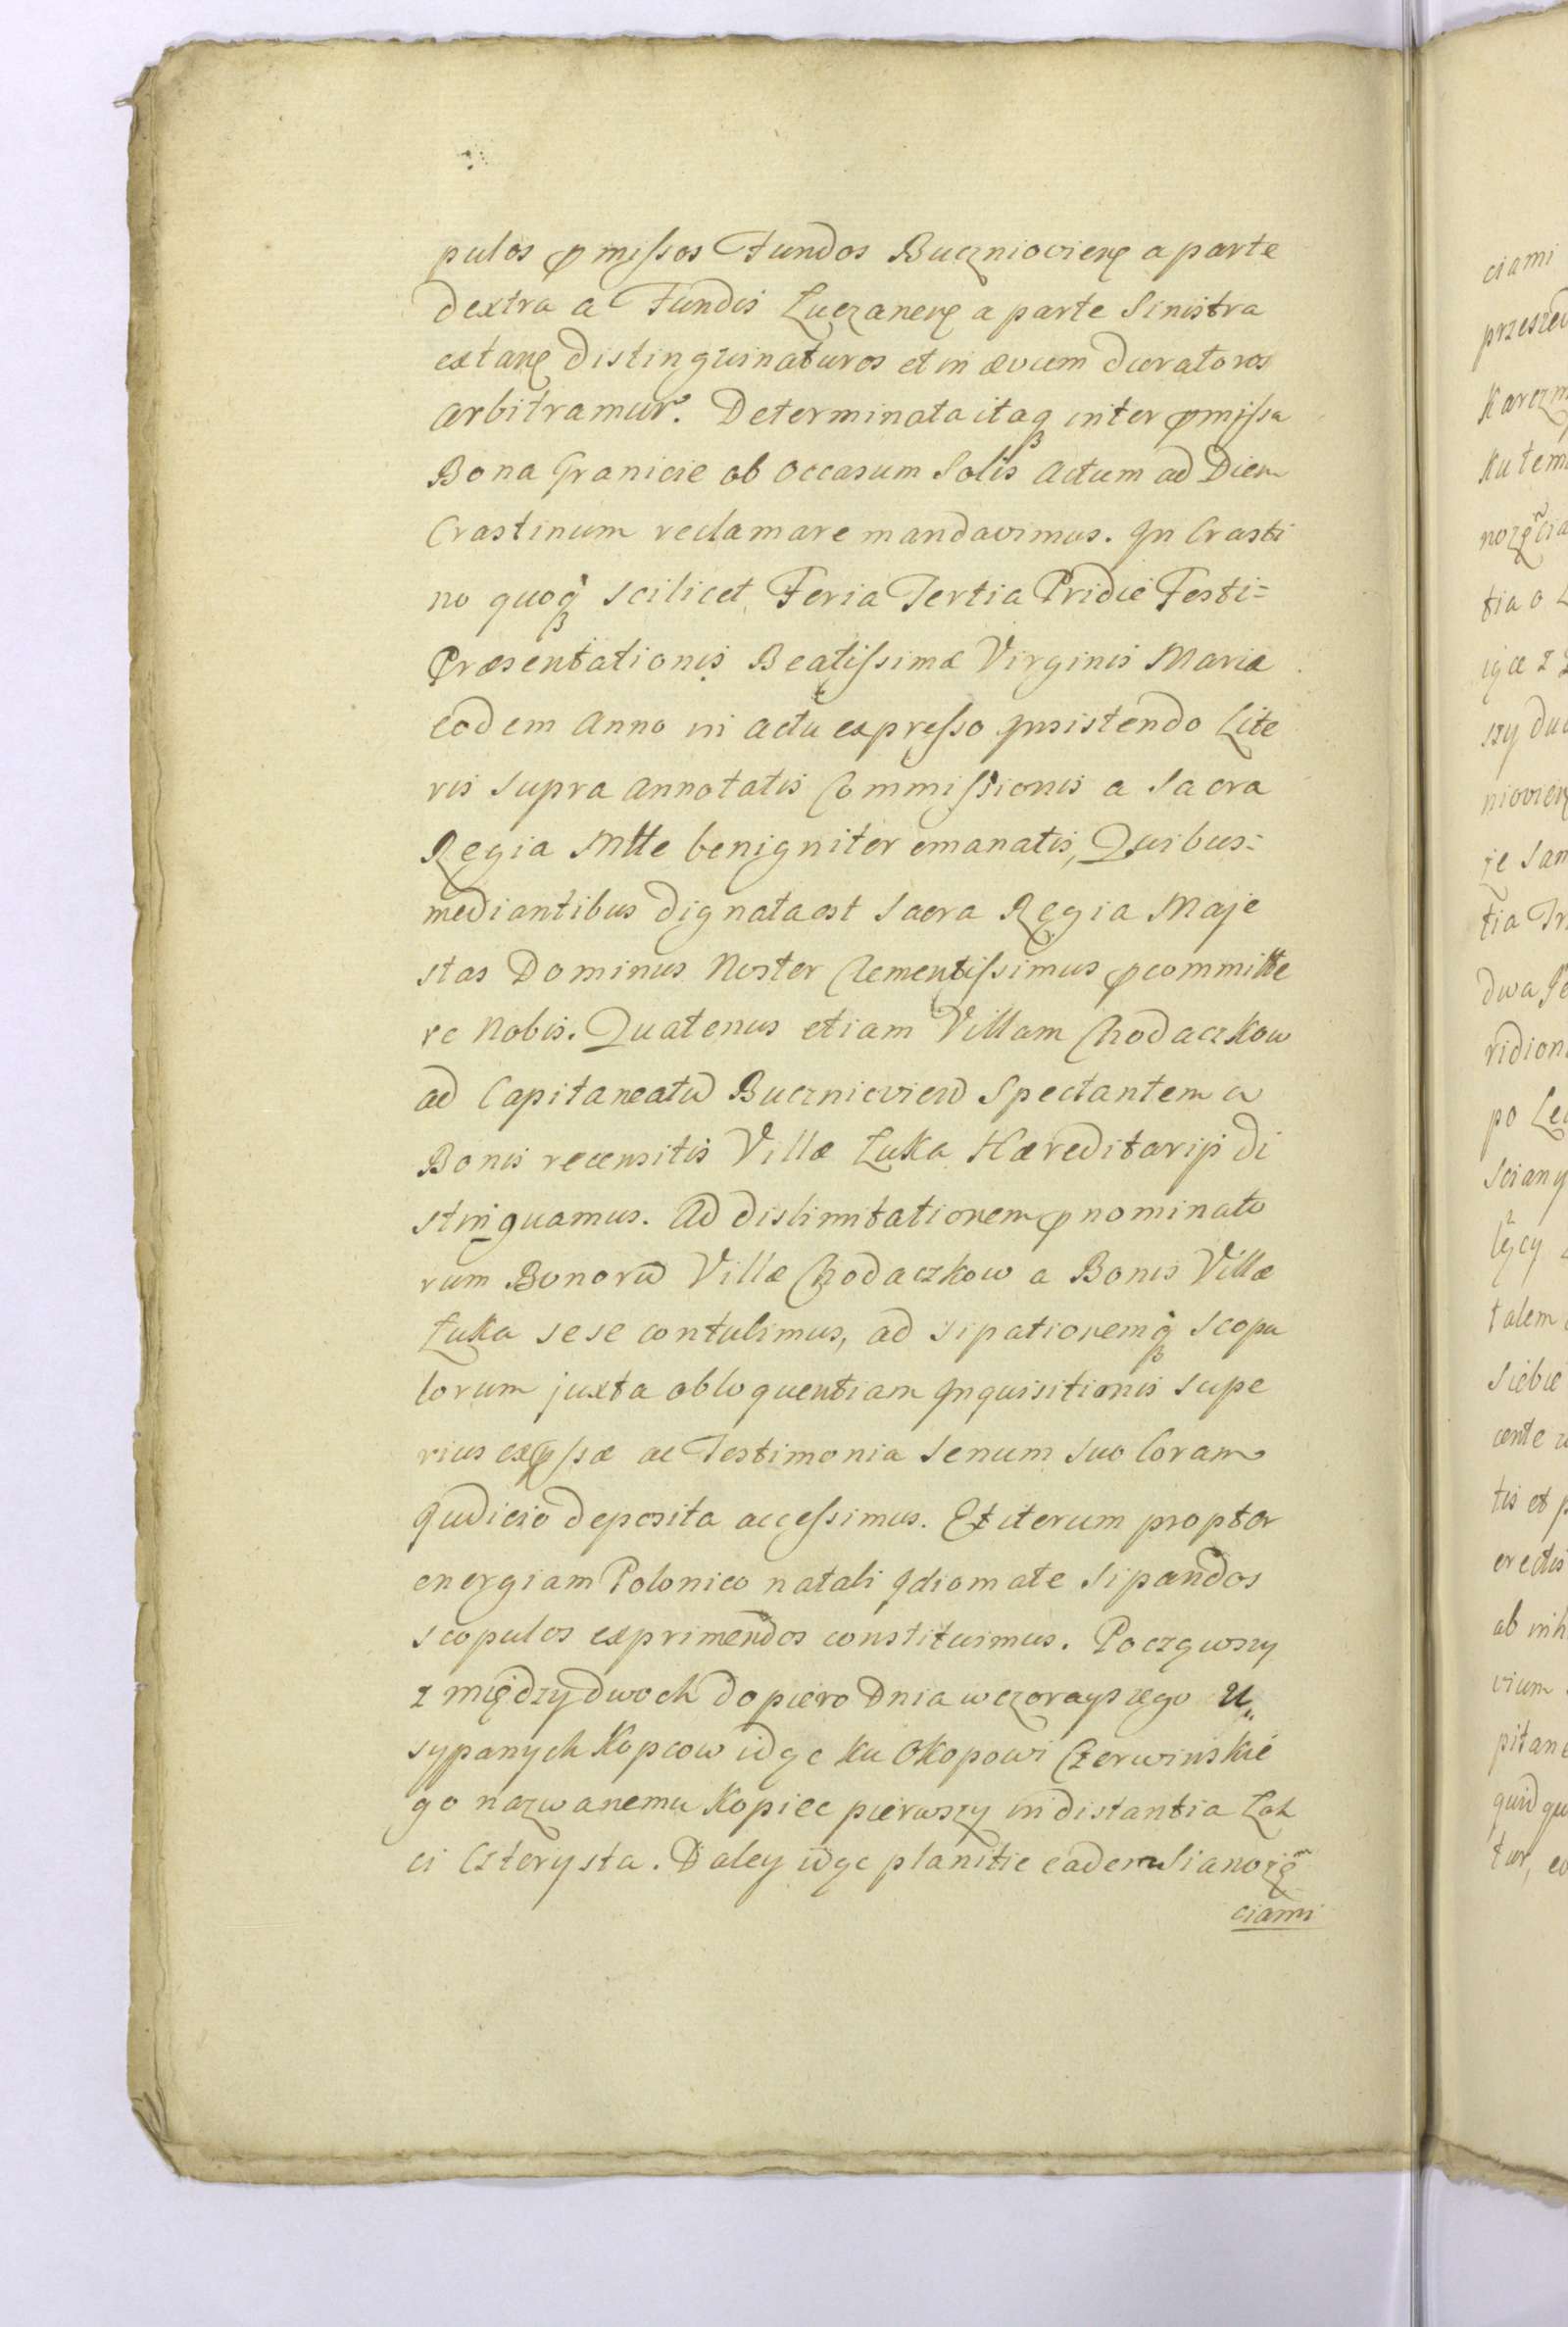 pulos p̄missos Fundos Buczniovien̄ a parte
dextra a Fundis Łuczanen̄ a parte Sinistra
extan̄ distinguinaturos et in ævum duraturos
arbitramur. Determinata itaq₃ inter p̄missa
Bona Granicie ob occasum Solis Actum ad Diem
Crastinum reclamare mandavimus. In Crasti
no quoq₃ scilicet Feria Tertia Pridie Festi=
Præsentationis Beatissimæ Virginis Mariæ
eodem Anno in actu expresso Insistendo Lite
ris supra annotatis Commissionis a Sacra
Regia Mtte benigniter emanatis, Quibus=
mediantibus dignata est Sacra Regia Maje
stas Dominus Noster Clementissimus p̄committe
re Nobis. Quatenus etiam Villam Chodaczkow
ad Capitaneatū Buczniovien̄ Spectantem a
Bonis recensitis Villæ Łuka Hæreditarijs di
stinguamus. Ad dislimitationem p̄nominato
rum Bonorū Villæ Chodaczkow a Bonis Villæ
Łuka sese contulimus, ad sipationemq₃ Scopu
lorum juxta obloquentiam Inquisitionis supe
rius exp̄ssæ ac Testimonia Senum suo Coram
Iudicio deposita accessimus. Et iterum propter
energiam Polonico natali Idiomate Sipandos
scopulos exprimendos constituimus. Począwszy
z między dwoch dopiero Dnia wczorayszego U„
sypanych Kopcow idąc ku Okopowi Czerwinskie
go nazwanemu Kopiec pierwszy in distantia Łok
ci Czterysta. Daley idąc planitie eadem Sianożę
ciami
ciami
je